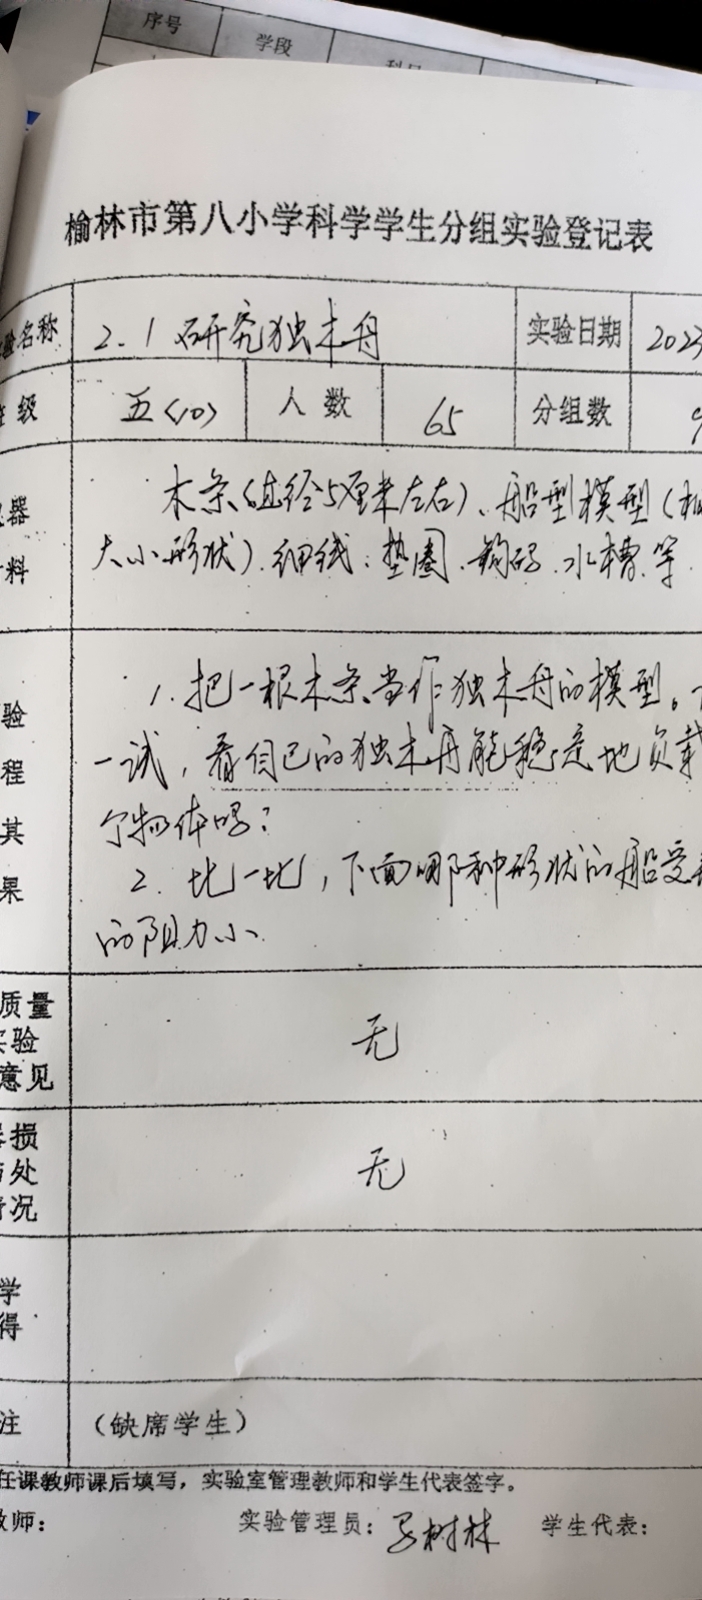 序号 学段
榆林市第八小学科学学生分组实验登记表
验名称 2.1 研究独木舟 实验日期 2023
级 五(10) 人数 65 分组数
器
料
木条(直径5厘米左右)、船型模型(
大小形状)、细线、垫圈、钩码、水槽等
验
程
其
果
1. 把一根木条当作独木舟的模型。
一试，看自己的独木舟能稳定地负载
个物体吗?
2. 比一比，下面哪种形状的船受
的阻力小
质量
实验
意见
无
损
处
情况
无
学
得
注 (缺席学生)
任课教师课后填写，实验室管理教师和学生代表签字。
教师: 实验管理员: 马树林 学生代表: